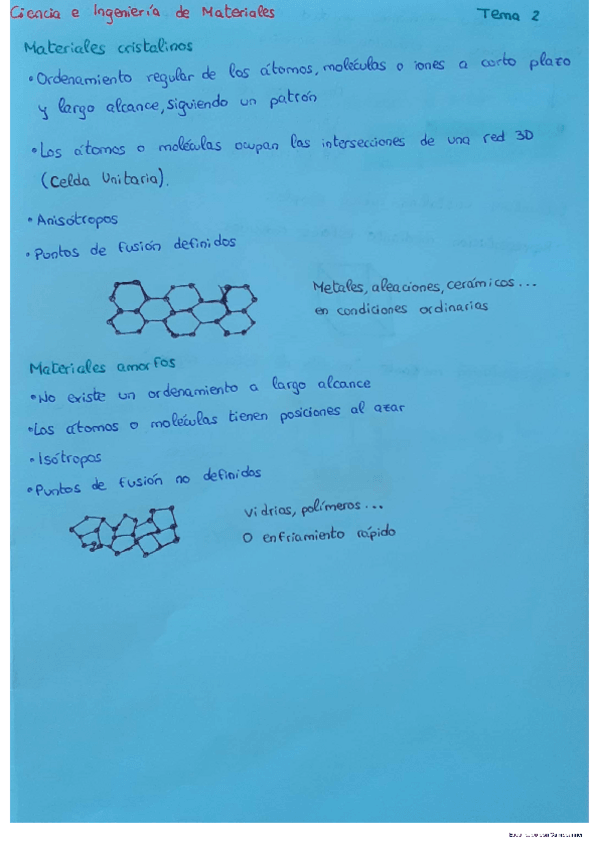 Ciencia e Ingeniería de Materiales
Tema 2
Materiales cristalinos
• Ordenamiento regular de los átomos, moléculas o iones a corto plazo
y largo alcance, siguiendo un patrón
• Los átomos o moléculas ocupan las intersecciones de una red 3D
(Celda Unitaria).
• Anisótropos
• Puntos de fusión definidos
Metales, aleaciones, cerámicos...
en condiciones ordinarias
Materiales amorfos
• No existe un ordenamiento a largo alcance
• Los átomos o moléculas tienen posiciones al azar
• Isótropos
• Puntos de fusión no definidos
Vidrios, polímeros...
O enfriamiento rápido